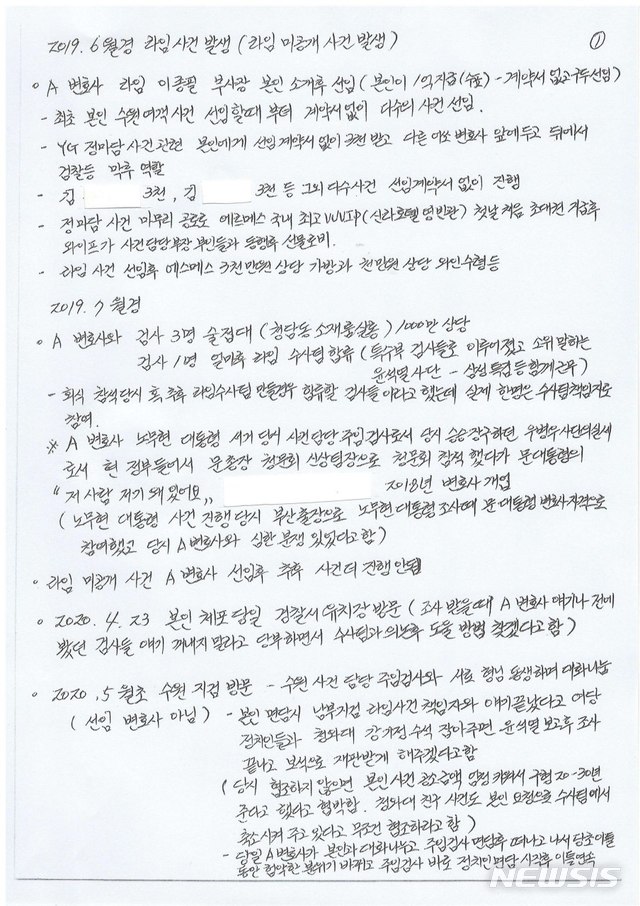 2019. 6월경 라임사건 발생 (라임 미공개 사건 발생)
①
○ A 변호사 라임 이종필 부사장 본인 소개후 선임 (본인이 1억지급(수표) - 계약서 없고 구두선임)
- 최초 본인 수원여객사건 선임할때 부터 계약서없이 다수의 사건 선임.
- YG 정마담 사건관련 본인에게 선임계약서 없이 3천 받고 다른 여쏘 변호사 앞에두고 뒤에서
검찰등 막후 역할
- 김 3천, 김 3천 등 그외 다수사건 선임계약서 없이 진행
- 정마담 사건 마무리 공로로 에르메스 국내 최고 VVVIP (신라호텔 영빈관) 첫날 처음 초대권 지급후
와이프가 사건담당부장 부인들과 동행후 선물로비.
- 라임 사건 선임후 에르메스 3천만원 상당 가방과 천만원 상당 와인수령등
2019. 7월경
○ A 변호사와 검사 3명 술접대 (청담동 소재 룸살롱) 1000만 상당
검사 1명 얼마후 라임 수사팀 합류 (특수부 검사들로 이루어졌고 소위 말하는
윤석열 사단 - 삼성특검등 함께 근무)
- 회식 참석당시 혹 추후 라임수사팀 만들경우 합류할 검사들이라고 했는데 실제 한명은 수사팀책임자로
참여.
※ A 변호사 노무현 대통령 서거 당시 사건담당 주임검사로서 당시 승승장구하던 우병우사단의 실세
로서 현 정부들어서 문총장 청문회 신상팀장으로 청문회 참석했다가 문대통령의
"저 사람 저기 왜 있어요,, 2018년 변호사 개업
(노무현 대통령 사건 진행당시 부산출장으로 노무현대통령조사때 문대통령 변호사 자격으로
참여했고 당시 A변호사와 심한 분쟁 있었다고함)
○ 라임 미공개 사건 A변호사 선임후 추후 사건더 진행안됨
○ 2020. 4. 23 본인 체포당일 경찰서유치장 방문 (조사 받을때 A 변호사 얘기나 전에
봤던 검사들 얘기 꺼내지 말라고 당부하면서 수사팀과의논후 도울 방법 찾겠다고함)
○ 2020. 5월초 수원 지검 방문 - 수원 사건 담당 주임검사와 서로 형님 동생하며 대화나눔
(선임 변호사 아님) - 본인 면담시 남부지검 라임사건 책임자와 얘기끝났다고 여당
정치인들과 청와대 강기정 수석 잡아주면 윤석열 보고후 조사
끝나고 보석으로 재판받게 해주겠다고함
(당시 협조하지 않으면 본인사건 공소금액 엄청 키워서 구형 20-30년
준다고 했다고 협박함. 청와대 친구 사건도 본인 요청으로 수사팀에서
축소시켜 주고 있다고 무조건 협조하라고함)
- 당일 A변호사가 본인과 대화나누고, 주임검사 면담후 떠나고나서 당초 이틀
동안 험악한 분위기 바뀌고 주임검사 바로 정치인면담 시작후 이틀연속
NEWSIS